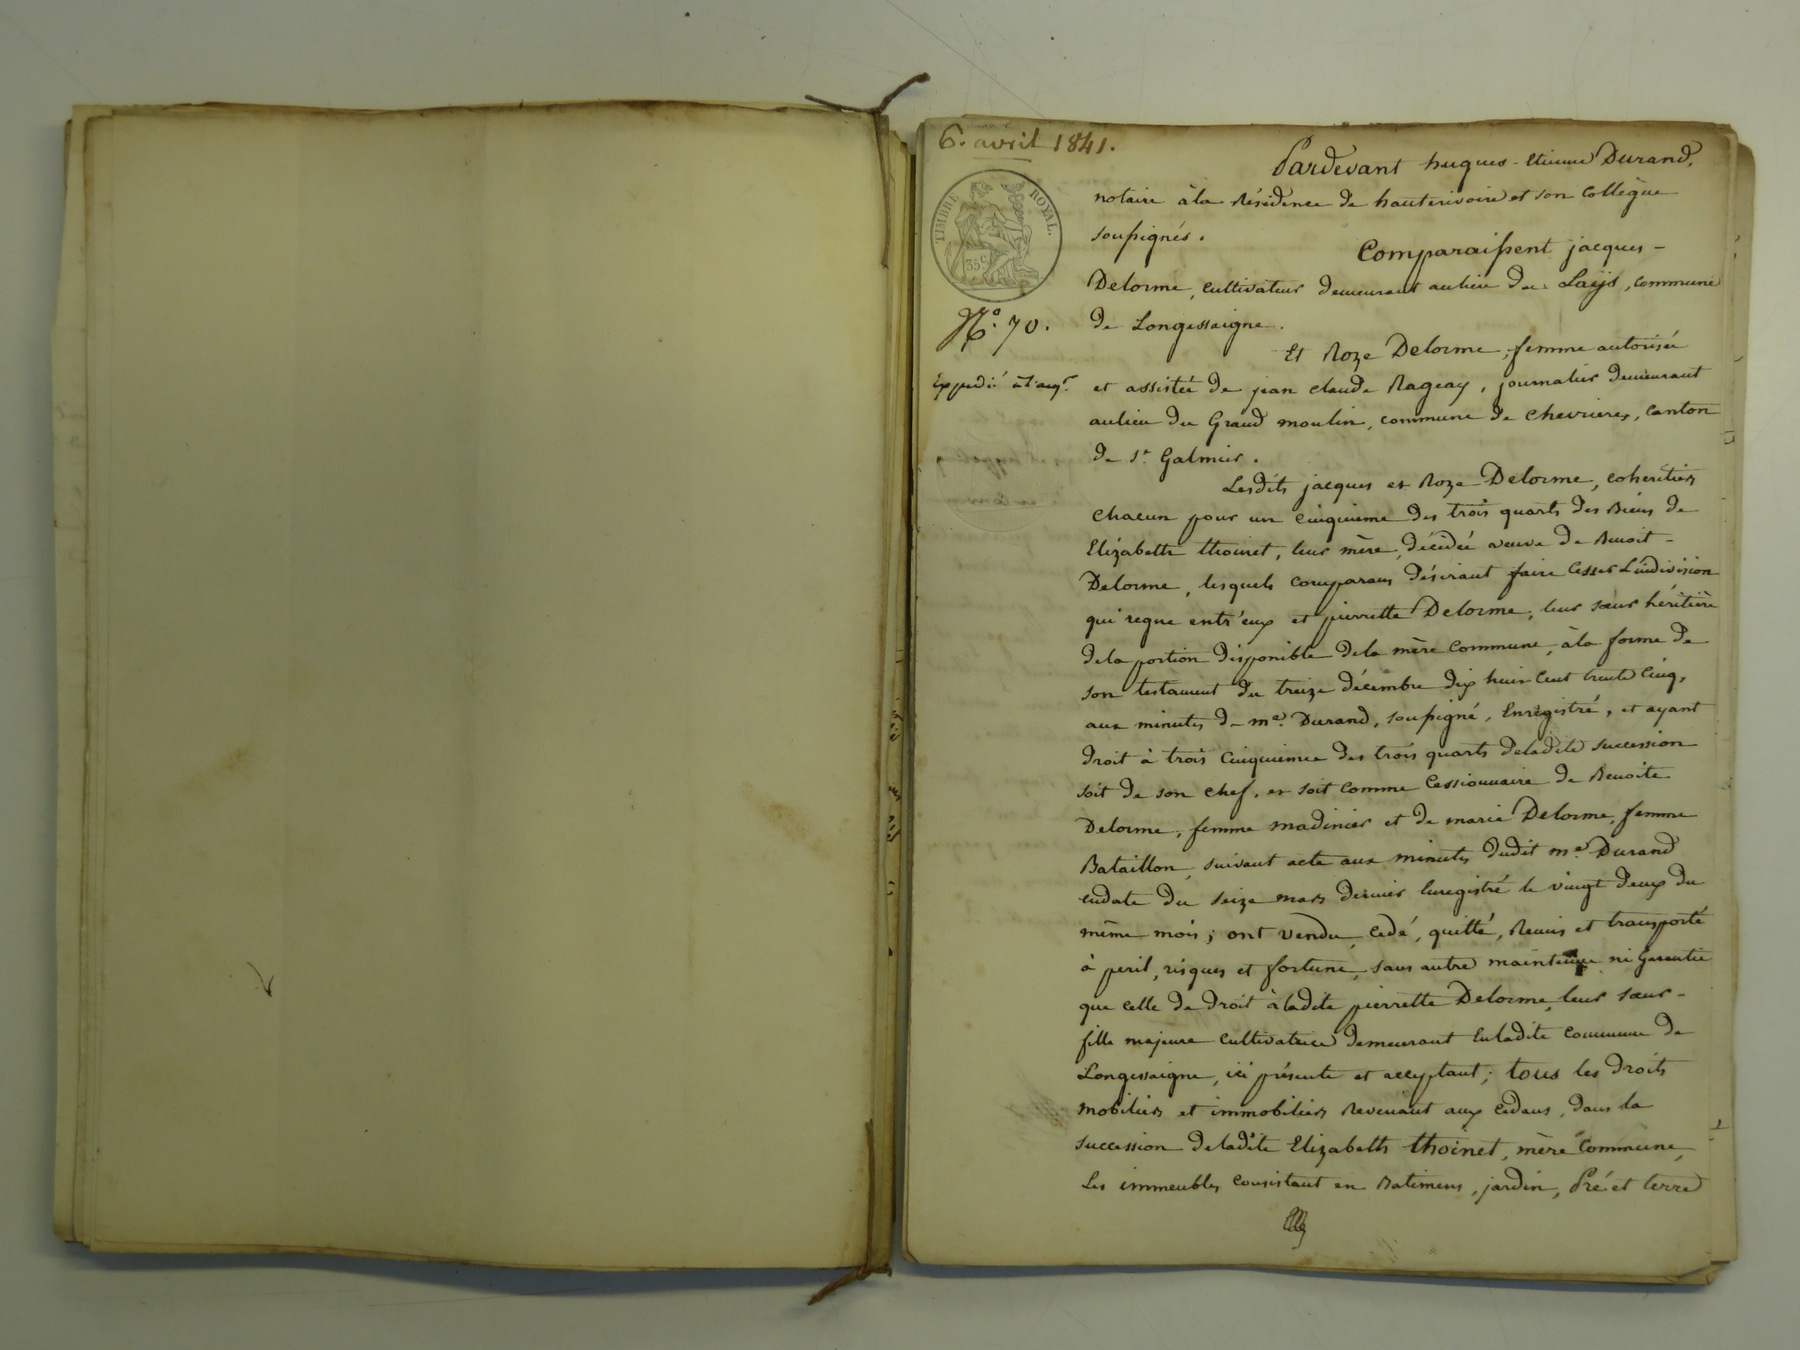 6. avril 1841.
TIMBRE ROYAL.
35 c
N.o 70.
Expedié à l'aqr.
Pardevant hugues-Etienne Durand,
notaire àla Résidence de hauterivoire et son Collègue
soussignés.
Comparaissent jacques-
Delorme, cultivateur demeurant aulieu du Laÿs, commune
de Longessaigne.
Et Roze Delorme, femme autorisée
et assistée de jean claude Rageay, journalier demeurant
aulieu du Grand moulin, commune de chevrieres, canton
de st. Galmier.
Lesdits jacques et Roze Delorme, coheritiers
chacun pour un cinquieme des trois quarts des Biens de
Elizabeth thoinet, leur mère, décédée veuve de Benoit-
Delorme, lesquels comparans désirant faire Cesser L'indivision
qui regne entr'eux et pierrette Delorme, leur sœur héritière
dela portion disponible dela mère commune, àla forme de
son testament du treize décembre dix huit Cent trente Cinq,
aux minutes de me. Durand, soussigné, Enregistré, et ayant
droit à trois Cinquiemes des trois quarts deladite succession
soit de son chef, et soit comme Cessionnaire de Benoite
Delorme, femme madinier et de marie Delorme, femme
Bataillon, suivant acte aux minutes dudit me. Durand
endate du seize mars dernier Enregistré le vingt deux du
même mois; ont vendu, cédé, quitté, Remis et transporté
à peril, risques et fortune, sans autre maintenue ni Garantie
que celle de droit àladite pierrette Delorme, leur sœur-
fille majeure cultivatrice demeurant Enladite commune de
Longessaigne, ici présente et acceptant; tous les droits
mobiliers et immobiliers Revenant aux cédans, dans la
succession deladite Elizabeth thoinet, mère commune,
Les immeubles consistant en Batimens, jardin, Pré et terre